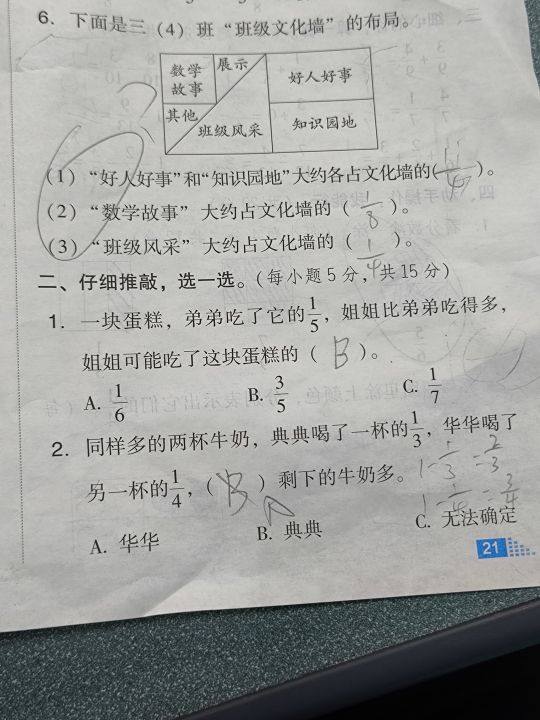 6. 下面是三（4）班“班级文化墙”的布局。
数学故事
展示
好人好事
其他
班级风采
知识园地
（1）“好人好事”和“知识园地”大约各占文化墙的( 1/4 )。
（2）“数学故事”大约占文化墙的（ 1/8 ）。
（3）“班级风采”大约占文化墙的（ 1/4 ）。
二、仔细推敲，选一选。（每小题5分，共15分）
1. 一块蛋糕，弟弟吃了它的1/5，姐姐比弟弟吃得多，
姐姐可能吃了这块蛋糕的（ B ）。
A. 1/6 B. 3/5 C. 1/7
2. 同样多的两杯牛奶，典典喝了一杯的1/3，华华喝了
另一杯的1/4，（ B ）剩下的牛奶多。
1-1/3=2/3
1-1/4=3/4
A. 华华 B. 典典 C. 无法确定
21